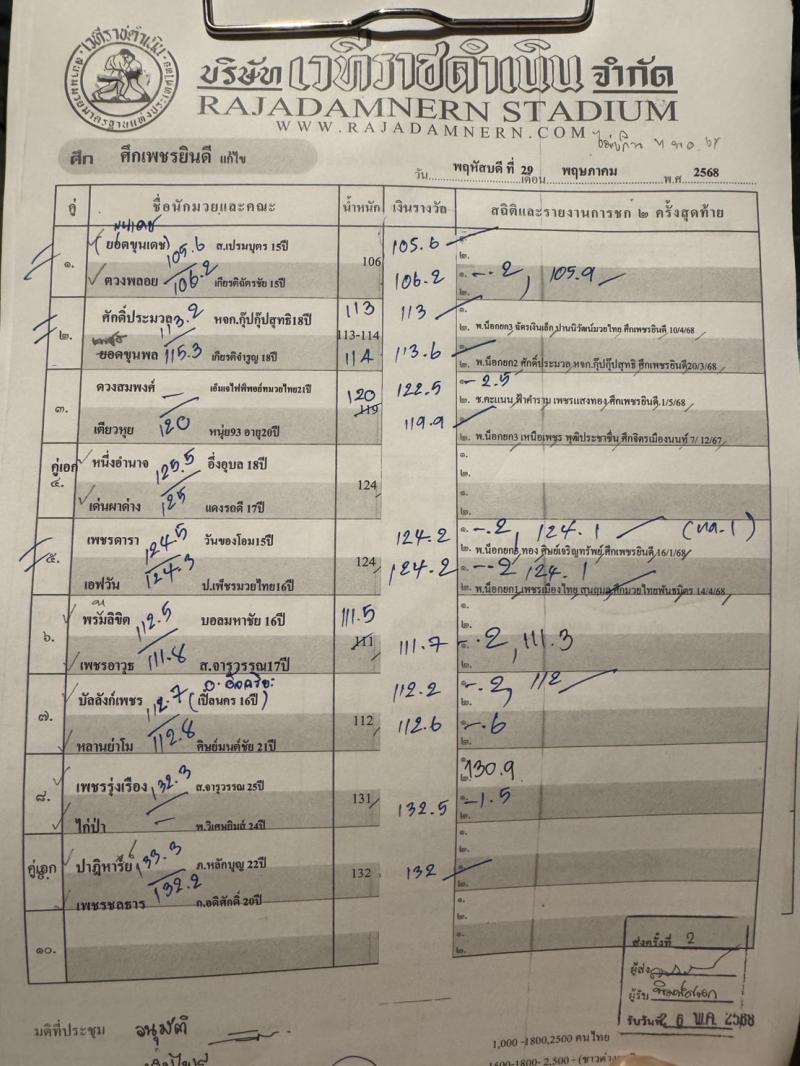 เวทีราชดำเนิน
บริษัท เวทีราชดำเนิน จำกัด
RAJADAMNERN STADIUM
WWW.RAJADAMNERN.COM
ศึก ศึกเพชรยินดี แก้ไข
วัน พฤหัสบดี ที่ 29 เดือน พฤษภาคม พ.ศ. 2568
คู่ ชื่อนักมวยและคณะ น้ำหนัก เงินรางวัล สถิติและรายงานการชก ๒ ครั้งสุดท้าย
๑. (ยอดขุนเดช) 105.6 ส.เปรมบุตร 15ปี 106 105.6 ๑. ๒.
ดวงพลอย 106.2 เกียรติฉัตรชัย 15ปี 106.2 ๑. -.2, 105.9 ๒.
๒. ศักดิ์ประมวล 113.2 หจก.กุ๊ปกุ๊ปสุทธิ18ปี 113 113-114 113 ๑.
๒. พ.น็อกยก3 ฉัตรเงินเล็ก ปานนิวัฒน์มวยไทย ศึกเพชรยินดี 10/4/68
ยอดขุนพล 115.3 เกียรติจำรูญ 18ปี 114 113.6 ๑.
๒. พ.น็อกยก2 ศักดิ์ประมวล หจก.กุ๊ปกุ๊ปสุทธิ ศึกเพชรยินดี20/3/68
๓. ดวงสมพงศ์ — เอ็มเจไฟท์พอยท์มวยไทย21ปี 120 119 122.5 ๑. -2.5
๒. ช.คะแนน ฟ้าคำราม เพชรแสงทอง ศึกเพชรยินดี 1/5/68
เตียวหุย 120 หนุ่ย93 อายุ20ปี 119.9 ๑.
๒. พ.น็อกยก3 เหนือเพชร พุฒิประชาชื่น ศึกจิตรเมืองนนท์ 7/ 12/67
คู่เอก ๔. หนึ่งอำนาจ 125.5 อึ่งอุบล 18ปี 124 ๑. ๒.
เด่นผาด่าง 125 แดงรถดี 17ปี ๑. ๒.
๕. เพชรดารา 124.5 วันของโอม15ปี 124 124.2 ๑. -.2, 124.1
๒. พ.น็อกยก3 ทอง ศิษย์เจริญทรัพย์ ศึกเพชรยินดี 16/1/68
เอฟวัน 124.3 ป.เพ็ชรมวยไทย16ปี 124.2 ๑. -.2 124.1
๒. พ.น็อกยก1 เพชรเมืองไทย สนฤมล ศึกมวยไทยพันธมิตร 14/4/68
๖. พรมลิขิต 112.5 บอลมหาชัย 16ปี 111.5 111 ๑. ๒.
เพชรอาวุธ 111.8 ส.จารุวรรณ17ปี 111.7 ๑. -.2, 111.3 ๒.
๗. บัลลังก์เพชร 112.7 (เปิ้ลนคร 16ปี) 112 112.2 ๑. -.2, 112 ๒.
หลานย่าโม 112.8 ศิษย์มนต์ชัย 21ปี 112.6 ๑. -.6 ๒.
๘. เพชรรุ่งเรือง 132.3 ส.จารุวรรณ 25ปี 131 130.9
ไก่ป่า — พ.วิเศษยิมส์ 24ปี 132.5 ๑. -1.5 ๒.
คู่เอก ๙. ปาฏิหาริย์ 133.3 ภ.หลักบุญ 22ปี 132 ๑. ๒.
เพชรชลธาร 132.2 ก.อดิศักดิ์ 20ปี 132 ๑. ๒.
๑๐. ๑. ๒.
๑. ๒.
ส่งครั้งที่ 2
ผู้ส่ง
ผู้รับ
รับวันที่ 26 พ.ค. 2568
มติที่ประชุม อนุมัติ
1,000 -1800,2500 คนไทย
1500-1800- 2,500 -